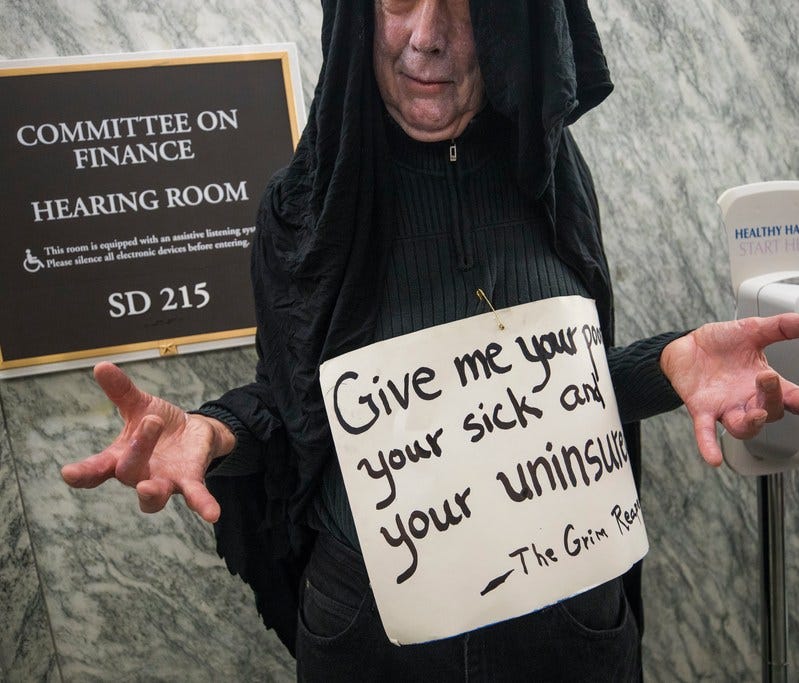 COMMITTEE ON
FINANCE
HEARING ROOM
This room is equipped with an assistive listening
Please silence all electronic devices before entering.
SD 215
HEALTHY
START
Give me your
your sick and
your uninsure
—The Grim Reap